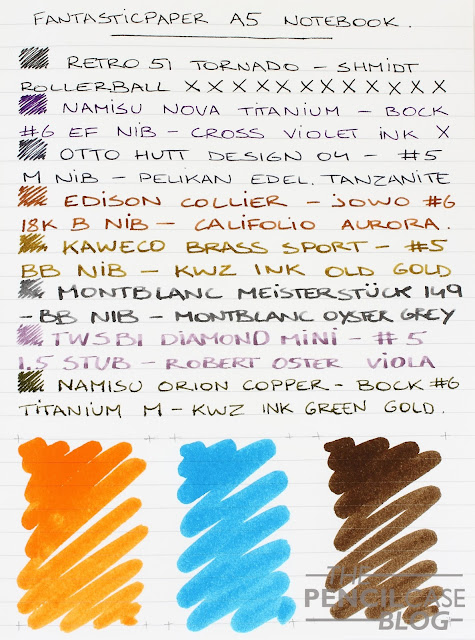 FANTASTICPAPER A5 NOTEBOOK.
RETRO 51 TORNADO - SHMIDT
ROLLERBALL X X X X X X X X X X X X
NAMISU NOVA TITANIUM - BOCK
#6 EF NIB - CROSS VIOLET INK X
OTTO HUTT DESIGN 04 - #5
M NIB - PELIKAN EDEL. TANZANITE
EDISON COLLIER - JOWO #6
18K B NIB - CALIFOLIO AURORA.
KAWECO BRASS SPORT - #5
BB NIB - KWZ INK OLD GOLD
MONTBLANC MEISTERSTÜCK 149
- BB NIB - MONTBLANC OYSTER GREY
TWSBI DIAMOND MINI - #5
1.5 STUB - ROBERT OSTER VIOLA
NAMISU ORION COPPER - BOCK #6
TITANIUM M - KWZ INK GREEN GOLD.
THE
PENCILCASE
BLOG